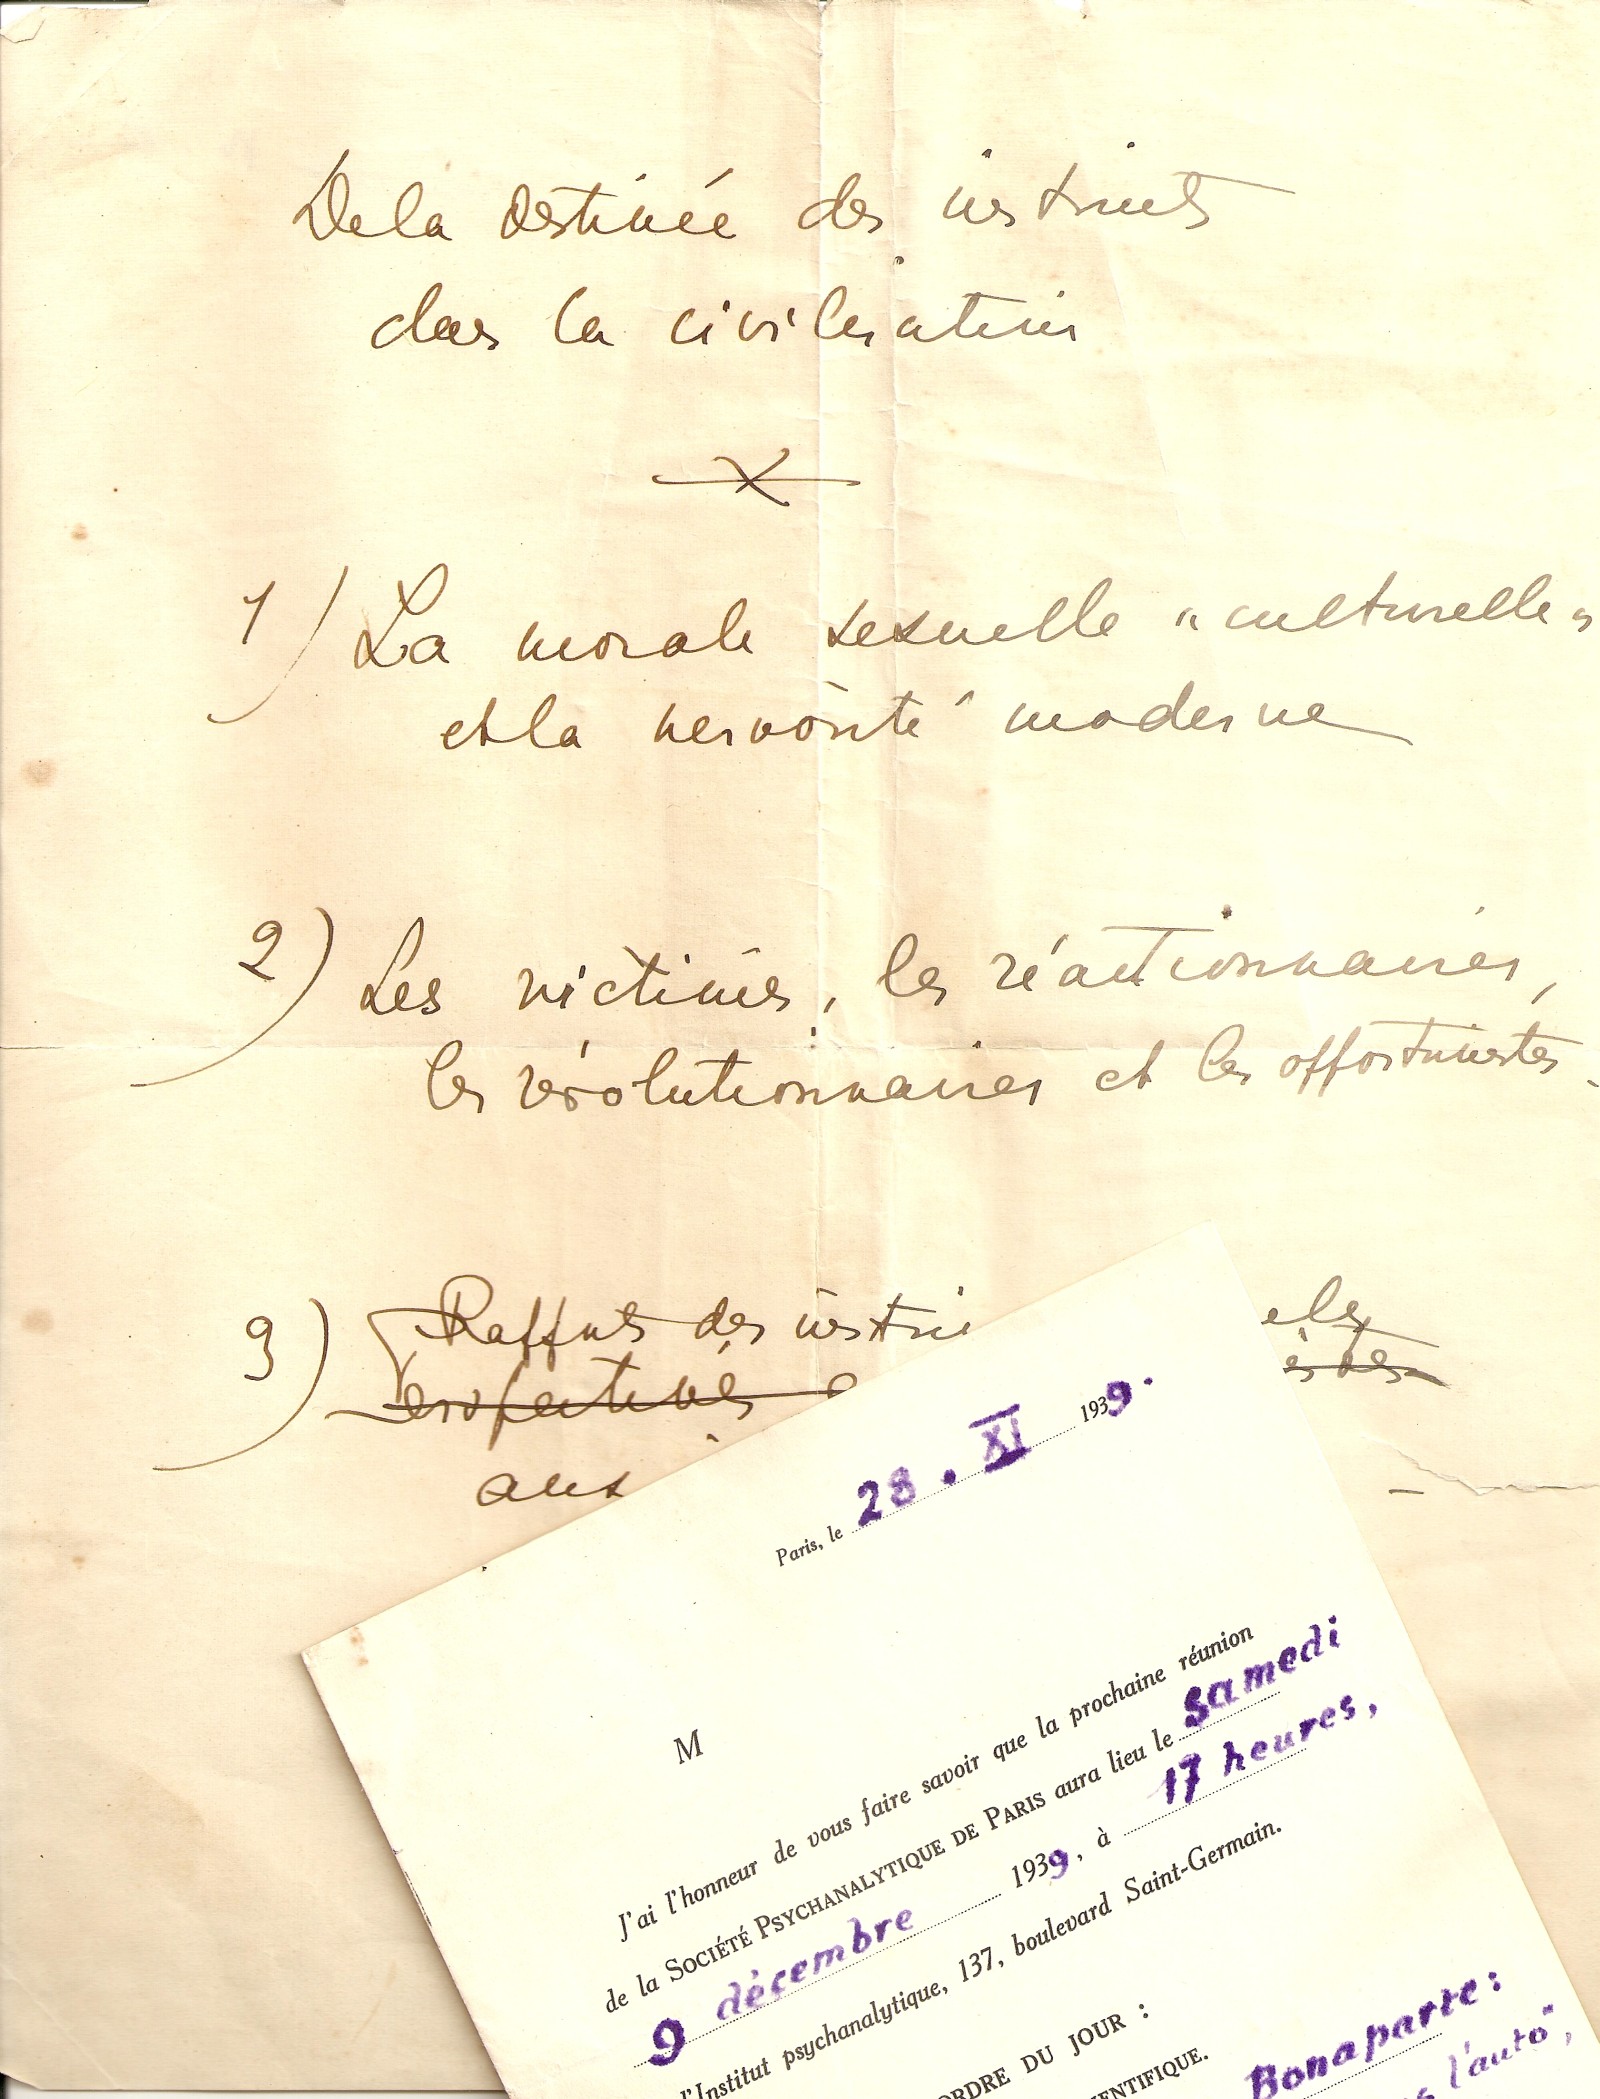 De la destinée des instincts
dans la civilisation
1) La morale sexuelle "culturelle"
et la nervosité moderne
2) Les victimes, les réactionnaires,
les révolutionnaires et les opportunistes.
3) Rapport des instin els
perspectives
aux
Paris, le 28. XI 1939.
M
J'ai l'honneur de vous faire savoir que la prochaine réunion
de la SOCIÉTÉ PSYCHANALYTIQUE DE PARIS aura lieu le samedi
9 décembre 1939, à 17 heures,
l'Institut psychanalytique, 137, boulevard Saint-Germain.
ORDRE DU JOUR :
ENTIFIQUE.
Bonaparte:
l'auto",